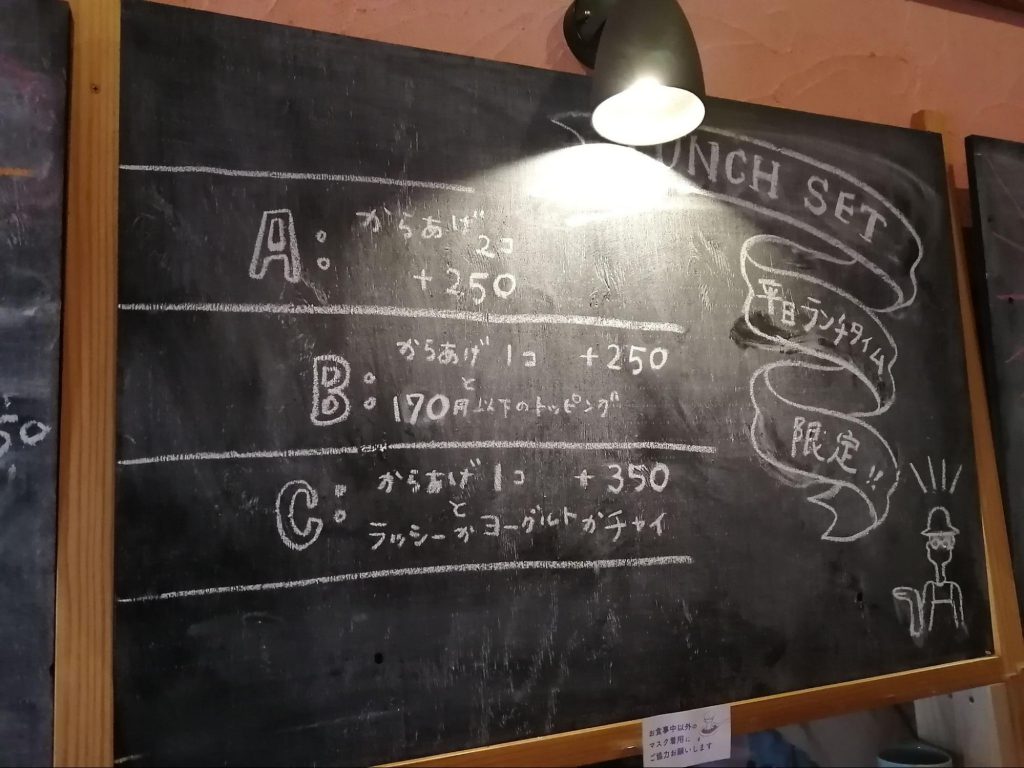 LUNCH SET
平日ランチタイム
限定!!
A: からあげ
2コ
+250
B: からあげ 1コ +250
と
170円以下のトッピング
C: からあげ 1コ +350
と
ラッシーかヨーグルトかチャイ
50
お食事中以外の
マスク着用に
ご協力お願いします